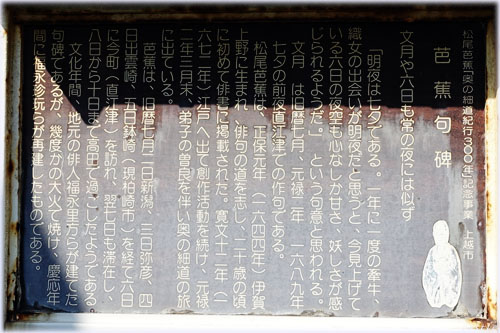 松尾芭蕉「奥の細道紀行300年」記念事業 上越市
芭蕉句碑
文月や六日も常の夜には似ず
「明夜は七夕である。一年に一度の牽牛、
織女の出会いが明夜だと思うと、今見上げて
いる六日の夜空も心なしか甘さ、妖しさが感
じられるようだ。」という句意と思われる。
文月 は旧暦七月、元禄二年 一六八九年
七夕の前夜直江津での作句である。
松尾芭蕉は、正保元年(一六四四年)伊賀
上野に生まれ、俳句の道を志し、二十歳の頃
に初めて俳書に掲載された。寛文十二年(一
六七二年)江戸へ出て創作活動を続け、元禄
二年三月末、弟子の曽良を伴い奥の細道の旅
に出ている。
芭蕉は、旧暦七月二日新潟、三日弥彦、四
日出雲崎、五日鉢崎(現柏崎市)を経て六日
に今町(直江津)を訪れ、翌七日も滞在し、
八日から十日まで高田で過ごしたようである
文化年間、地元の俳人福永里方らが建てた
句碑であるが、幾度かの大火で焼け、慶応年
間に福永珍玩らが再建したものである。